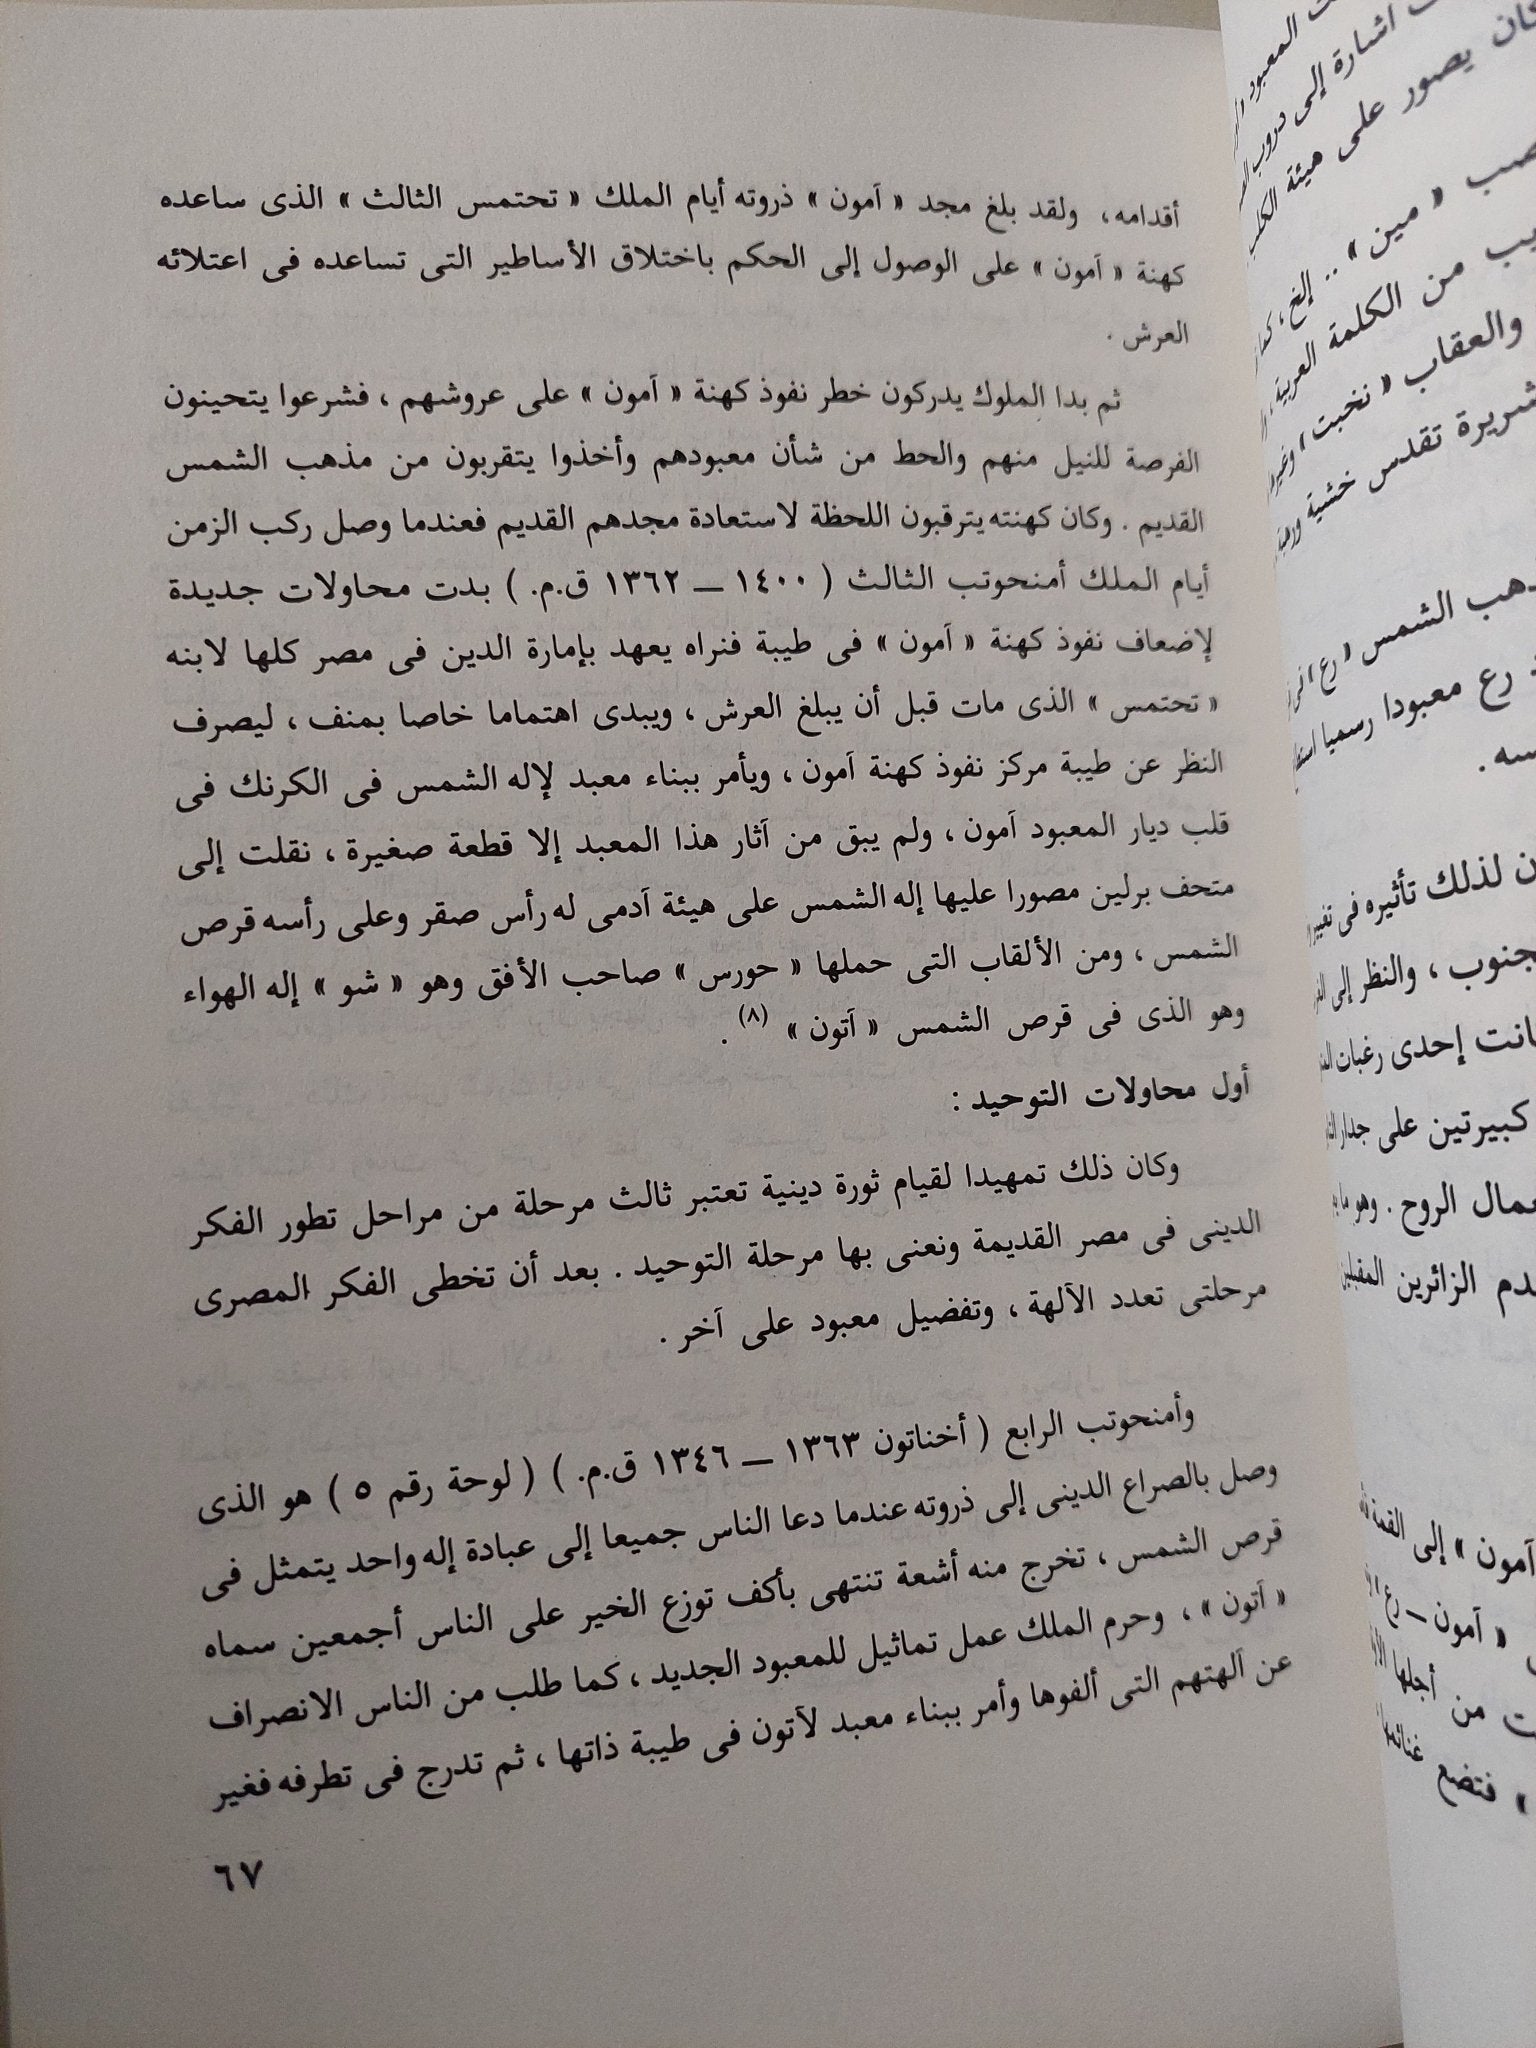 أقدامه، ولقد بلغ مجد « آمون » ذروته أيام الملك « تحتمس الثالث » الذى ساعده
كهنة « آمون » على الوصول إلى الحكم باختلاق الأساطير التى تساعده فى اعتلائه
العرش .
ثم بدا الملوك يدركون خطر نفوذ كهنة « آمون » على عروشهم ، فشرعوا يتحينون
الفرصة للنيل منهم والحط من شأن معبودهم وأخذوا يتقربون من مذهب الشمس
القديم . وكان كهنته يترقبون اللحظة لاستعادة مجدهم القديم فعندما وصل ركب الزمن
أيام الملك أمنحوتب الثالث ( ١٤٠٠ — ١٣٦٢ ق.م. ) بدت محاولات جديدة
لإضعاف نفوذ كهنة « آمون » فى طيبة فنراه يعهد بإمارة الدين فى مصر كلها لابنه
« تحتمس » الذى مات قبل أن يبلغ العرش ، ويبدى اهتماما خاصا بمنف ، ليصرف
النظر عن طيبة مركز نفوذ كهنة آمون ، ويأمر ببناء معبد لإله الشمس فى الكرنك فى
قلب ديار المعبود آمون ، ولم يبق من آثار هذا المعبد إلا قطعة صغيرة ، نقلت إلى
متحف برلين مصورا عليها إله الشمس على هيئة آدمى له رأس صقر وعلى رأسه قرص
الشمس ، ومن الألقاب التى حملها « حورس » صاحب الأفق وهو « شو » إله الهواء
وهو الذى فى قرص الشمس « آتون » (٨) .
أول محاولات التوحيد :
وكان ذلك تمهيدا لقيام ثورة دينية تعتبر ثالث مرحلة من مراحل تطور الفكر
الدينى فى مصر القديمة ونعنى بها مرحلة التوحيد . بعد أن تخطى الفكر المصرى
مرحلتى تعدد الآلهة ، وتفضيل معبود على آخر .
وأمنحوتب الرابع ( أخناتون ١٣٦٣ — ١٣٤٦ ق.م. ) ( لوحة رقم ٥ ) هو الذى
وصل بالصراع الدينى إلى ذروته عندما دعا الناس جميعا إلى عبادة إله واحد يتمثل فى
قرص الشمس ، تخرج منه أشعة تنتهى بأكف توزع الخير على الناس أجمعين سماه
« آتون » ، وحرم الملك عمل تماثيل للمعبود الجديد ، كما طلب من الناس الانصراف
عن آلهتهم التى ألفوها وأمر ببناء معبد لآتون فى طيبة ذاتها ، ثم تدرج فى تطرفه فغير
٦٧
المعبود
اشارة إلى دروب
كان يصور على هيئة الكلب
« مين » .. إلخ ،
من الكلمة العربية
والعقاب « نخبت » وغيرها
شريرة تقدس خشية
الشمس « رع »
رع معبودا رسميا
لذلك تأثيره فى
، والنظر إلى
إحدى رغبات
كبيرتين على جدار
الروح . وهو ما
الزائرين المقبلين
آمون » إلى القمة
« آمون — رع »
من أجلها
» فتضع